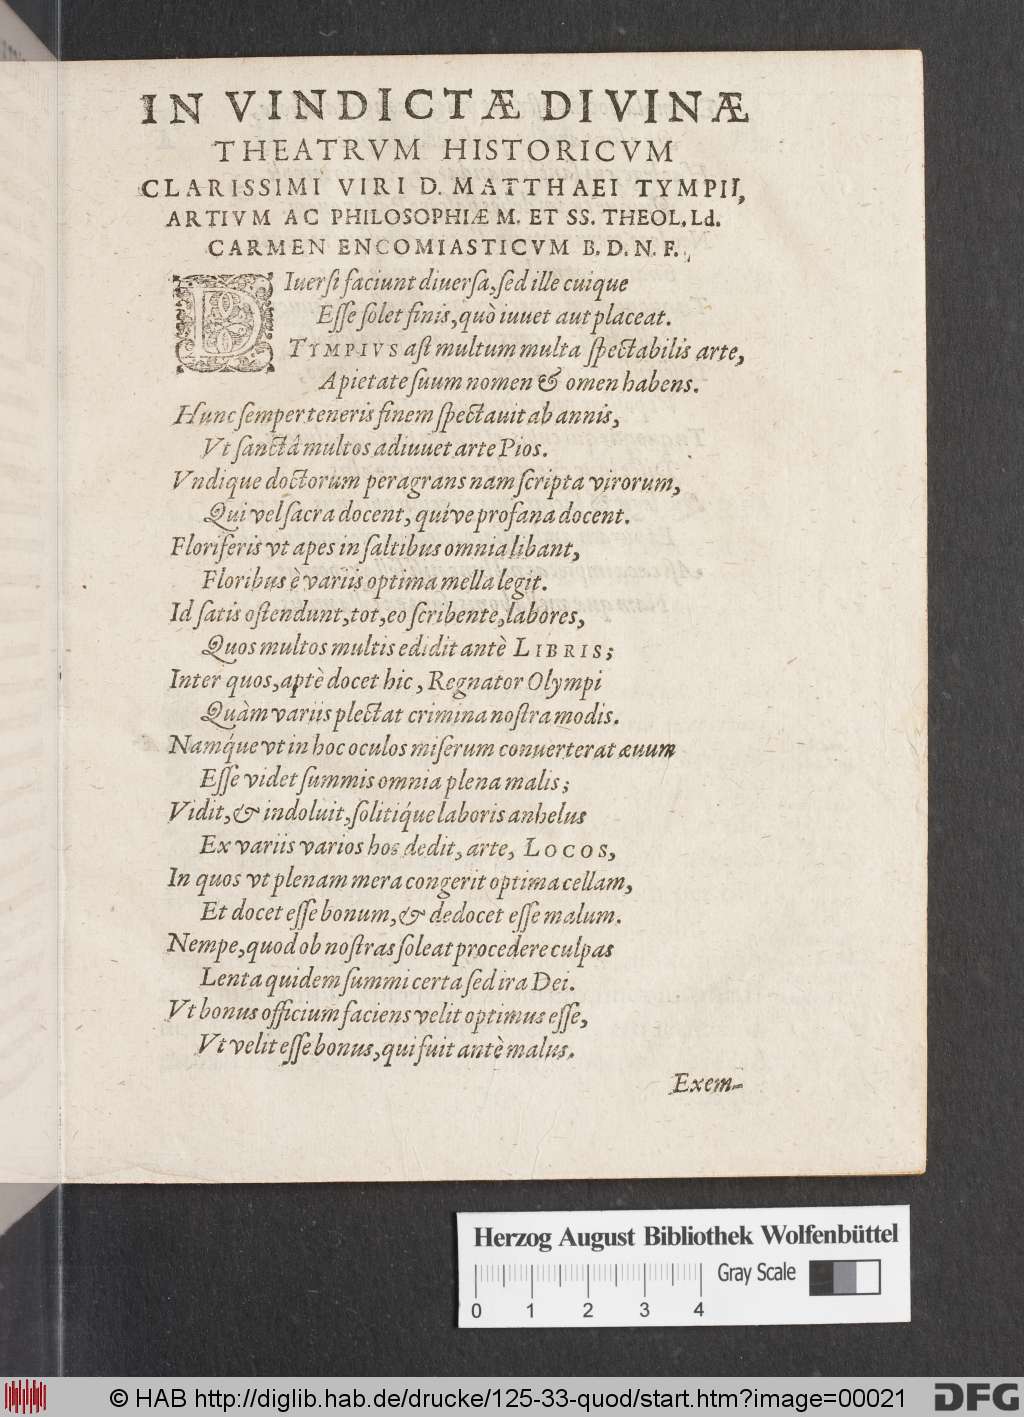 IN VINDICTÆ DIVINÆ
THEATRVM HISTORICVM
CLARISSIMI VIRI D. MATTHAEI TYMPII,
ARTIVM AC PHILOSOPHIÆ M. ET SS. THEOL. Ld.
CARMEN ENCOMIASTICVM B. D. N. F.
DIuersi faciunt diuersa, sed ille cuique
Esse solet finis, quò iuuet aut placeat.
TYMPIVS ast multum multa spectabilis arte,
A pietate suum nomen & omen habens.
Hunc semper teneris finem spectauit ab annis,
Vt sanctâ multos adiuuet arte Pios.
Vndique doctorum peragrans nam scripta virorum,
Qui vel sacra docent, quive profana docent.
Floriferis vt apes in saltibus omnia libant,
Floribus è variis optima mella legit.
Id satis ostendunt, tot, eo scribente, labores,
Quos multos multis edidit antè LIBRIS;
Inter quos, aptè docet hic, Regnator Olympi
Quàm variis plectat crimina nostra modis.
Namq́ue vt in hoc oculos miserum conuerterat æuum
Esse videt summis omnia plena malis;
Vidit, & indoluit, solitiq́ue laboris anhelus
Ex variis varios hos dedit, arte, LOCOS,
In quos vt plenam mera congerit optima cellam,
Et docet esse bonum, & dedocet esse malum.
Nempe, quod ob nostras soleat procedere culpas
Lenta quidem summi certa sed ira Dei.
Vt bonus officium faciens velit optimus esse,
Vt velit esse bonus, qui fuit antè malus.
Exem-
Herzog August Bibliothek Wolfenbüttel
Gray Scale
0 1 2 3 4
© HAB http://diglib.hab.de/drucke/125-33-quod/start.htm?image=00021
DFG